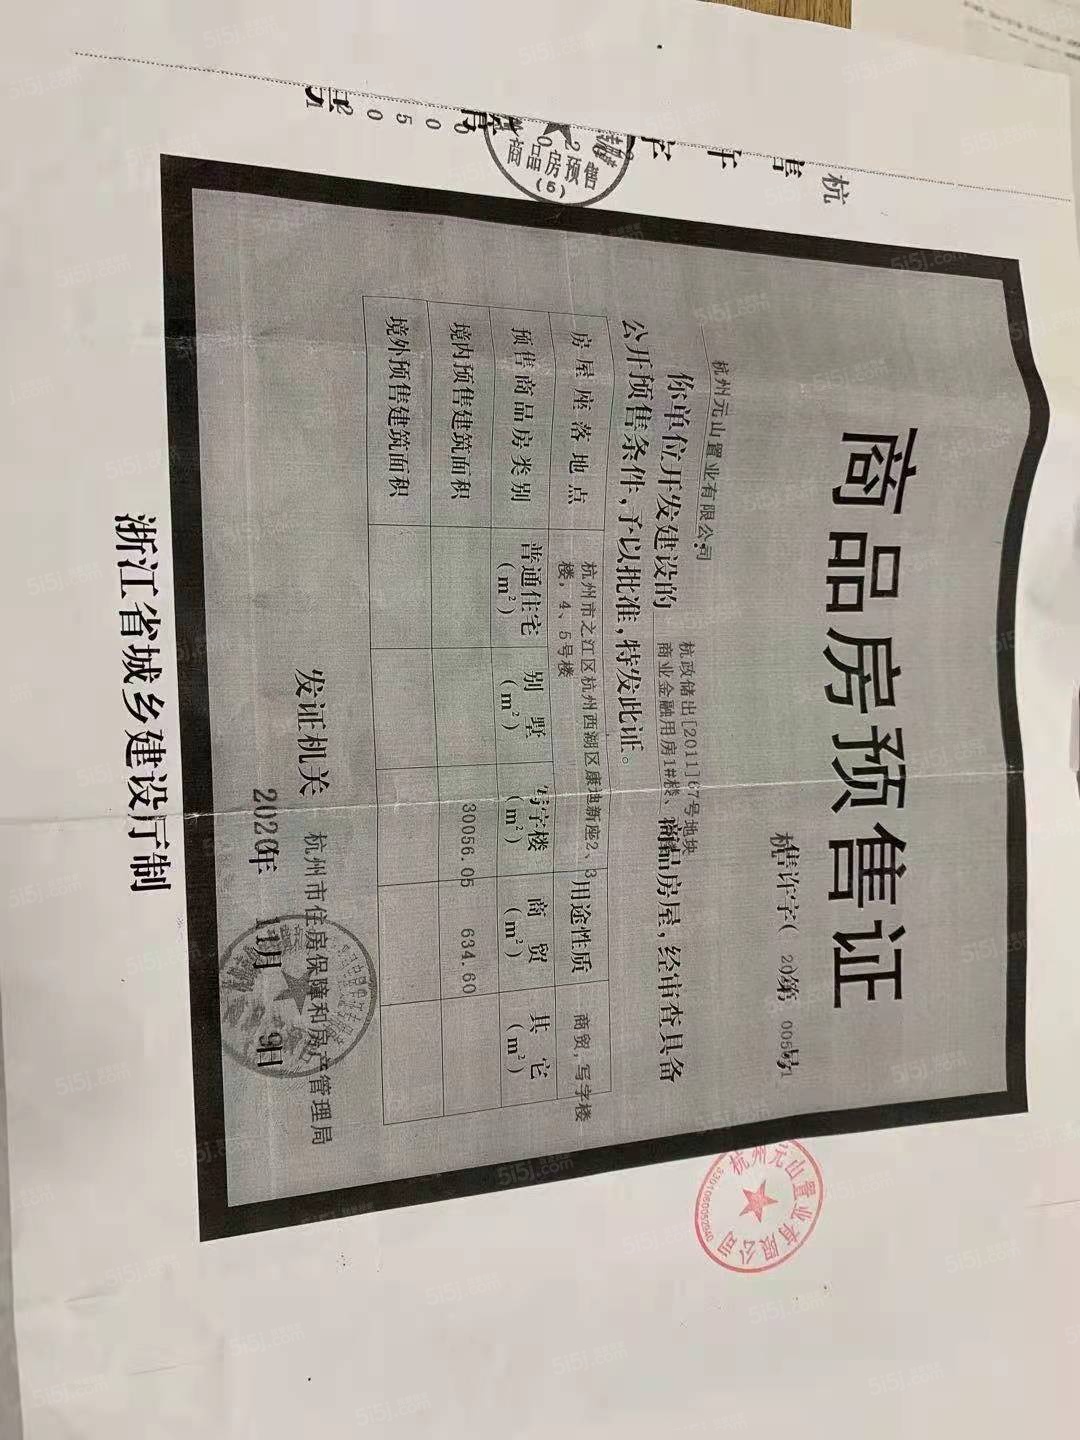 商品房预售证
杭售许字(20 第005 号
杭州元山置业有限公司
杭政储出[2011]67号地块
你单位开发建设的商业金融用房1#楼、商品房屋,经审查具备
公开预售条件,予以批准,特发此证。
房屋座落地点 杭州市之江区杭州西湖区康地新座2、3楼,4、5号楼 用途性质 商贸,写字楼
预售商品房类别 普通住宅(m²) 别墅(m²) 写字楼(m²) 商贸(m²) 其它(m²)
境内预售建筑面积 30056.05 634.60
境外预售建筑面积
发证机关 杭州市住房保障和房产管理局
2020年 11月 9日
浙江省城乡建设厅制
商品房预售
(5)
杭州元山置业有限公司
5i5j.com